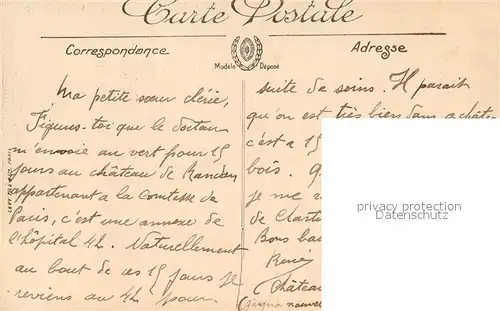 Carte Postale
Correspondance
Adresse
Modèle Déposé
Ma petite sœur chérie,
Figures-toi que le docteur
m'envoie au vert pour 15
jours au château de Randan
appartenant a la Comtesse de
Paris, c'est une annexe de
l'hôpital 42. Naturellement
au bout de ces 15 jours je
reviens au 42 pour
suite de soins. Il parait
qu'on est très bien dans
c'est a 15
bois.
je me
de
Bons
René
Château
nouvel
privacy protection
Datenschutz